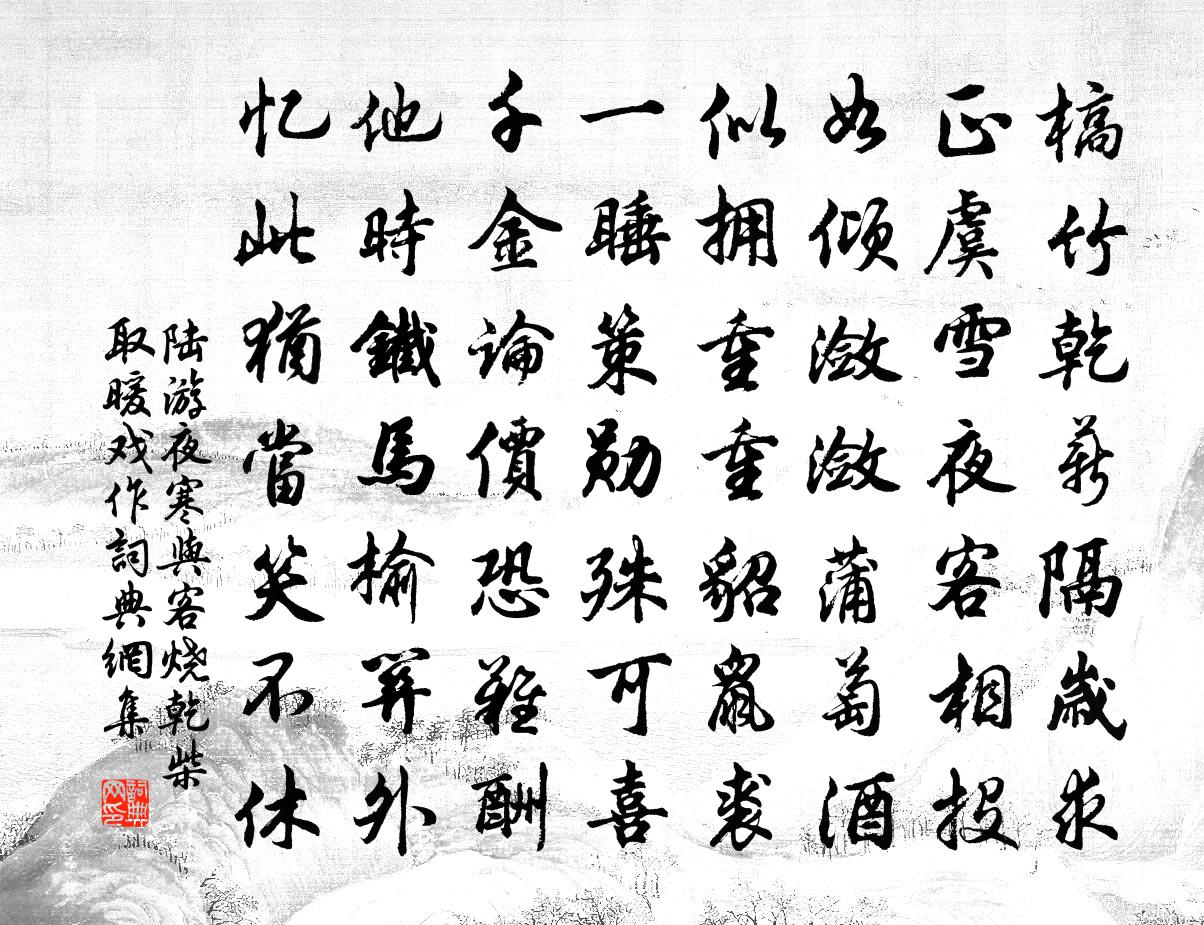 槁竹乾薪隔歲求
正虞雪夜客相投
如倾潋潋蒲萄酒
似拥重重貂鼠裘
一睡策勋殊可喜
千金論價恐難酬
他時鐵馬榆關外
忆此猶當笑不休
陆游夜寒與客烧乾柴
取暖戏作詞典網集
詞典网印